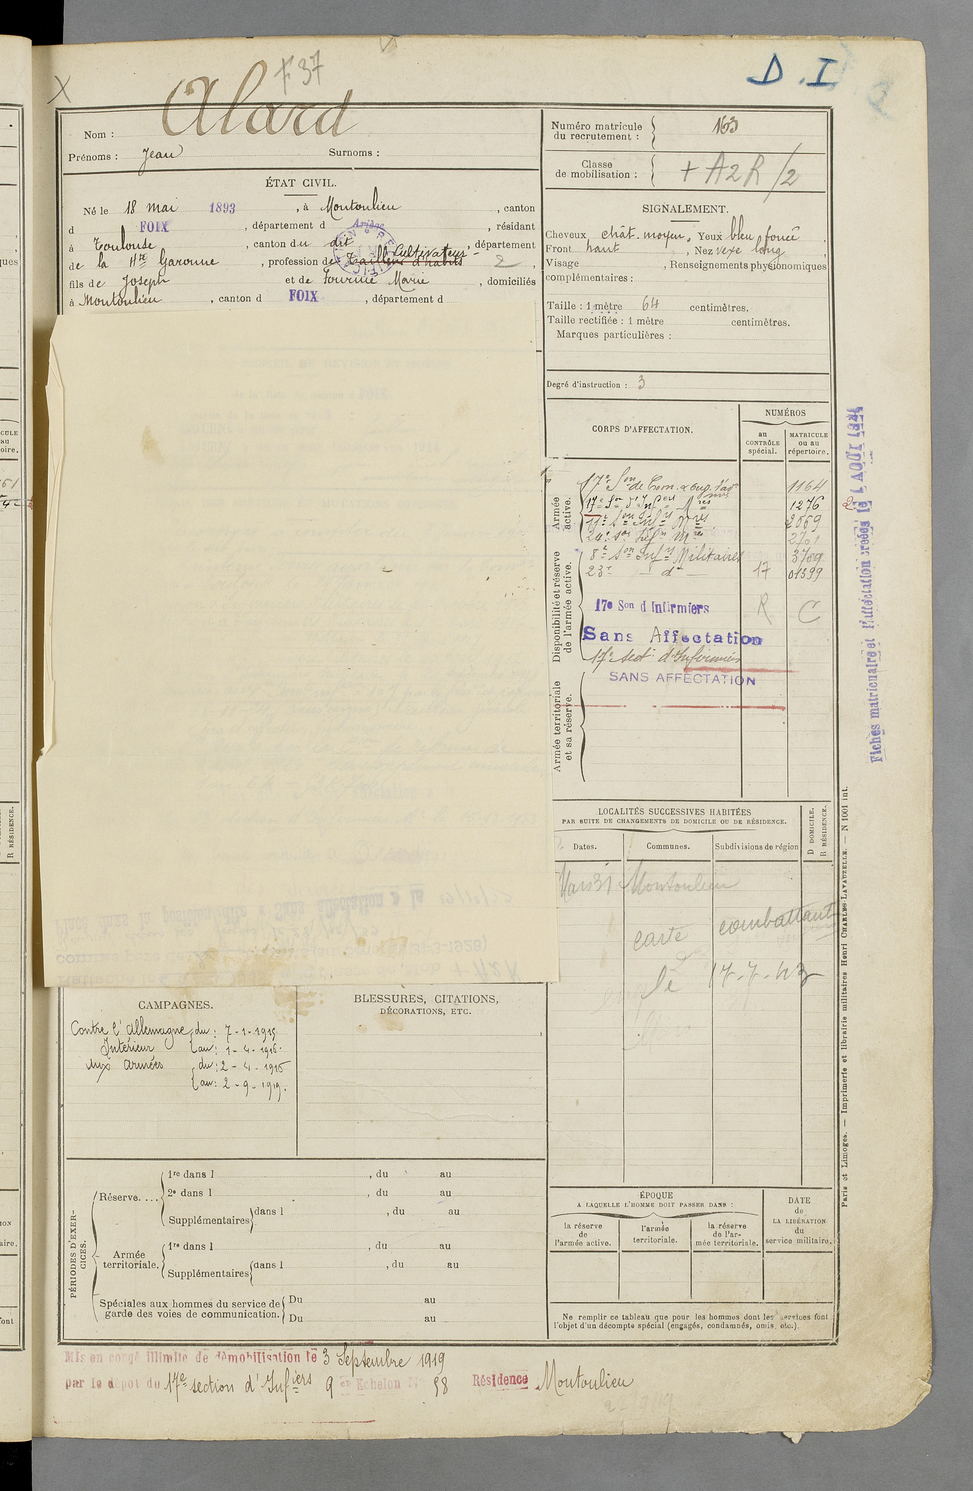 F 37
D. I
X
Nom : Alard
Prénoms : Jean Surnoms :
ÉTAT CIVIL.
Né le 18 mai 1893, à Montoulieu, canton
d FOIX, département d Ariège, résidant
à Toulouse, canton du dit, département
de la Hte Garonne, profession de Tailleur d'habits Cultivateur 2,
fils de Joseph et de Fournié Marie, domiciliés
à Montoulieu, canton d FOIX, département d
Numéro matricule du recrutement : 163
Classe de mobilisation : + A2R/2
SIGNALEMENT.
Cheveux chât. moyen, Yeux bleu foncé
Front haut, Nez vexe long
Visage , Renseignements physionomiques
complémentaires :
Taille : 1 mètre 64 centimètres.
Taille rectifiée : 1 mètre centimètres.
Marques particulières :
Degré d'instruction : 3
CORPS D'AFFECTATION.
NUMÉROS
au CONTRÔLE spécial.
MATRICULE ou au répertoire.
Armée active.
17e Son de Com. 1164
17e Son d'Inf 1276
2069
24e Son Infrs Mres 2701
Disponibilité et réserve de l'armée active.
8e Son Infrs Militaires 3709
23e — d° — 17 01399
17e Son d Infirmiers R C
Sans Affectation
17e Sect. d'Infirmiers
SANS AFFECTATION
Armée territoriale et sa réserve.
Fiches matriculaire et d'affectation créées le 1 AOUT 1927
LOCALITÉS SUCCESSIVES HABITÉES
PAR SUITE DE CHANGEMENTS DE DOMICILE OU DE RÉSIDENCE.
D DOMICILE.
R RÉSIDENCE.
Dates. Communes. Subdivisions de région
Mars 31 Montoulieu
carte combattant
le 17-7-43
CAMPAGNES.
Contre l'Allemagne du : 7-1-1915
Intérieur au : 1-4-1915.
Aux armées du : 2-4-1915
au : 2-9-1919.
BLESSURES, CITATIONS,
DÉCORATIONS, ETC.
PÉRIODES D'EXERCICES.
Réserve....
1re dans l , du au
2e dans l , du au
Supplémentaires dans l , du au
Armée territoriale.
1re dans l , du au
Supplémentaires dans l , du au
Spéciales aux hommes du service de garde des voies de communication.
Du au
Du au
ÉPOQUE
A LAQUELLE L'HOMME DOIT PASSER DANS :
la réserve de l'armée active.
l'armée territoriale.
la réserve de l'armée territoriale.
DATE de LA LIBÉRATION du service militaire.
Ne remplir ce tableau que pour les hommes dont les services font
l'objet d'un décompte spécial (engagés, condamnés, omis, etc.).
Paris et Limoges. — Imprimerie et librairie militaires Henri CHARLES-LAVAUZELLE. — N 1001 int.
Mis en congé illimité de démobilisation le 3 Septembre 1919
par le dépôt du 17e section d'Infiers 9 en Echelon N° 58 Résidence Montoulieu